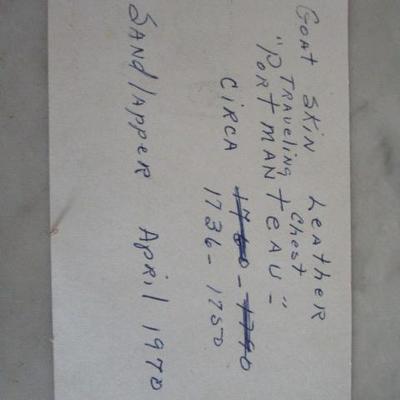 GOAT SKIN LEATHER
TRAVELING Chest
"PORTMANTEAU"-
CIRCA 1760-1790
1736-1750
SANDlAPPER April 1970